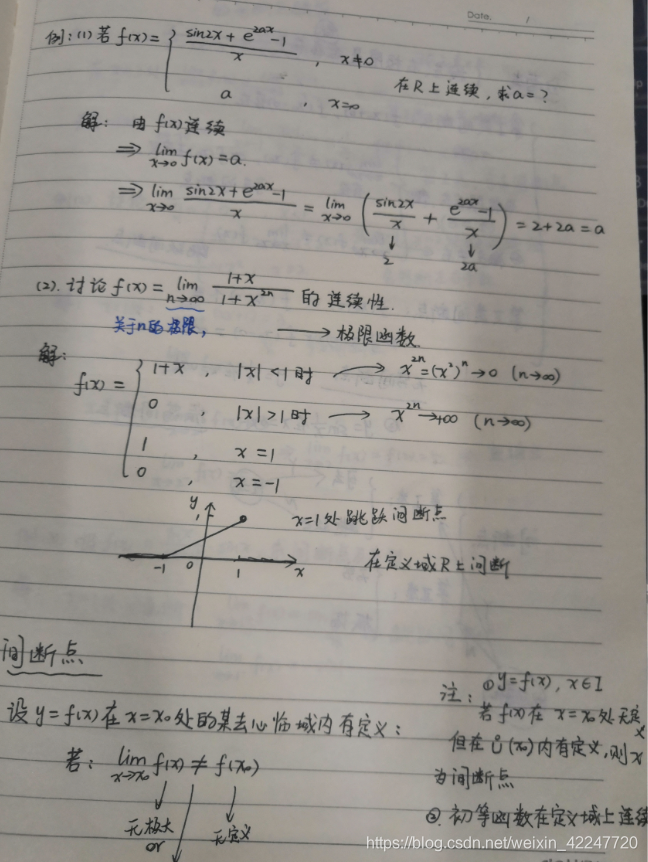 Date. /
例：(1) 若 f(x) = { (sin2x + e^{2ax} - 1)/x , x≠0
a , x=0 在R上连续, 求a=?
解：由 f(x) 连续
⇒ lim_{x→0} f(x) = a.
⇒ lim_{x→0} (sin2x + e^{2ax} - 1)/x = lim_{x→0} ( sin2x/x + (e^{2ax} - 1)/x ) = 2+2a = a
↓ 2 ↓ 2a
(2). 讨论 f(x) = lim_{n→∞} (1+x)/(1+x^{2n}) 的连续性.
关于n的极限, → 极限函数.
解：
f(x) = { 1+x , |x|<1时 → x^{2n}=(x²)^n→0 (n→∞)
0 , |x|>1时 → x^{2n}→+∞ (n→∞)
1 , x=1
0 , x=-1
y
x=1处跳跃间断点
-1 0 1 x
在定义域R上间断
间断点
设 y=f(x) 在 x=x₀ 处的某去心临域内有定义：
若： lim_{x→x₀} f(x) ≠ f(x₀)
↓ ↓ ↓
无极大 无定义
or
注：①y=f(x), x∈I
若f(x)在 x=x₀处无定义
但在Ů(x₀)内有定义,则x
为间断点
②. 初等函数在定义域上连续
https://blog.csdn.net/weixin_42247720